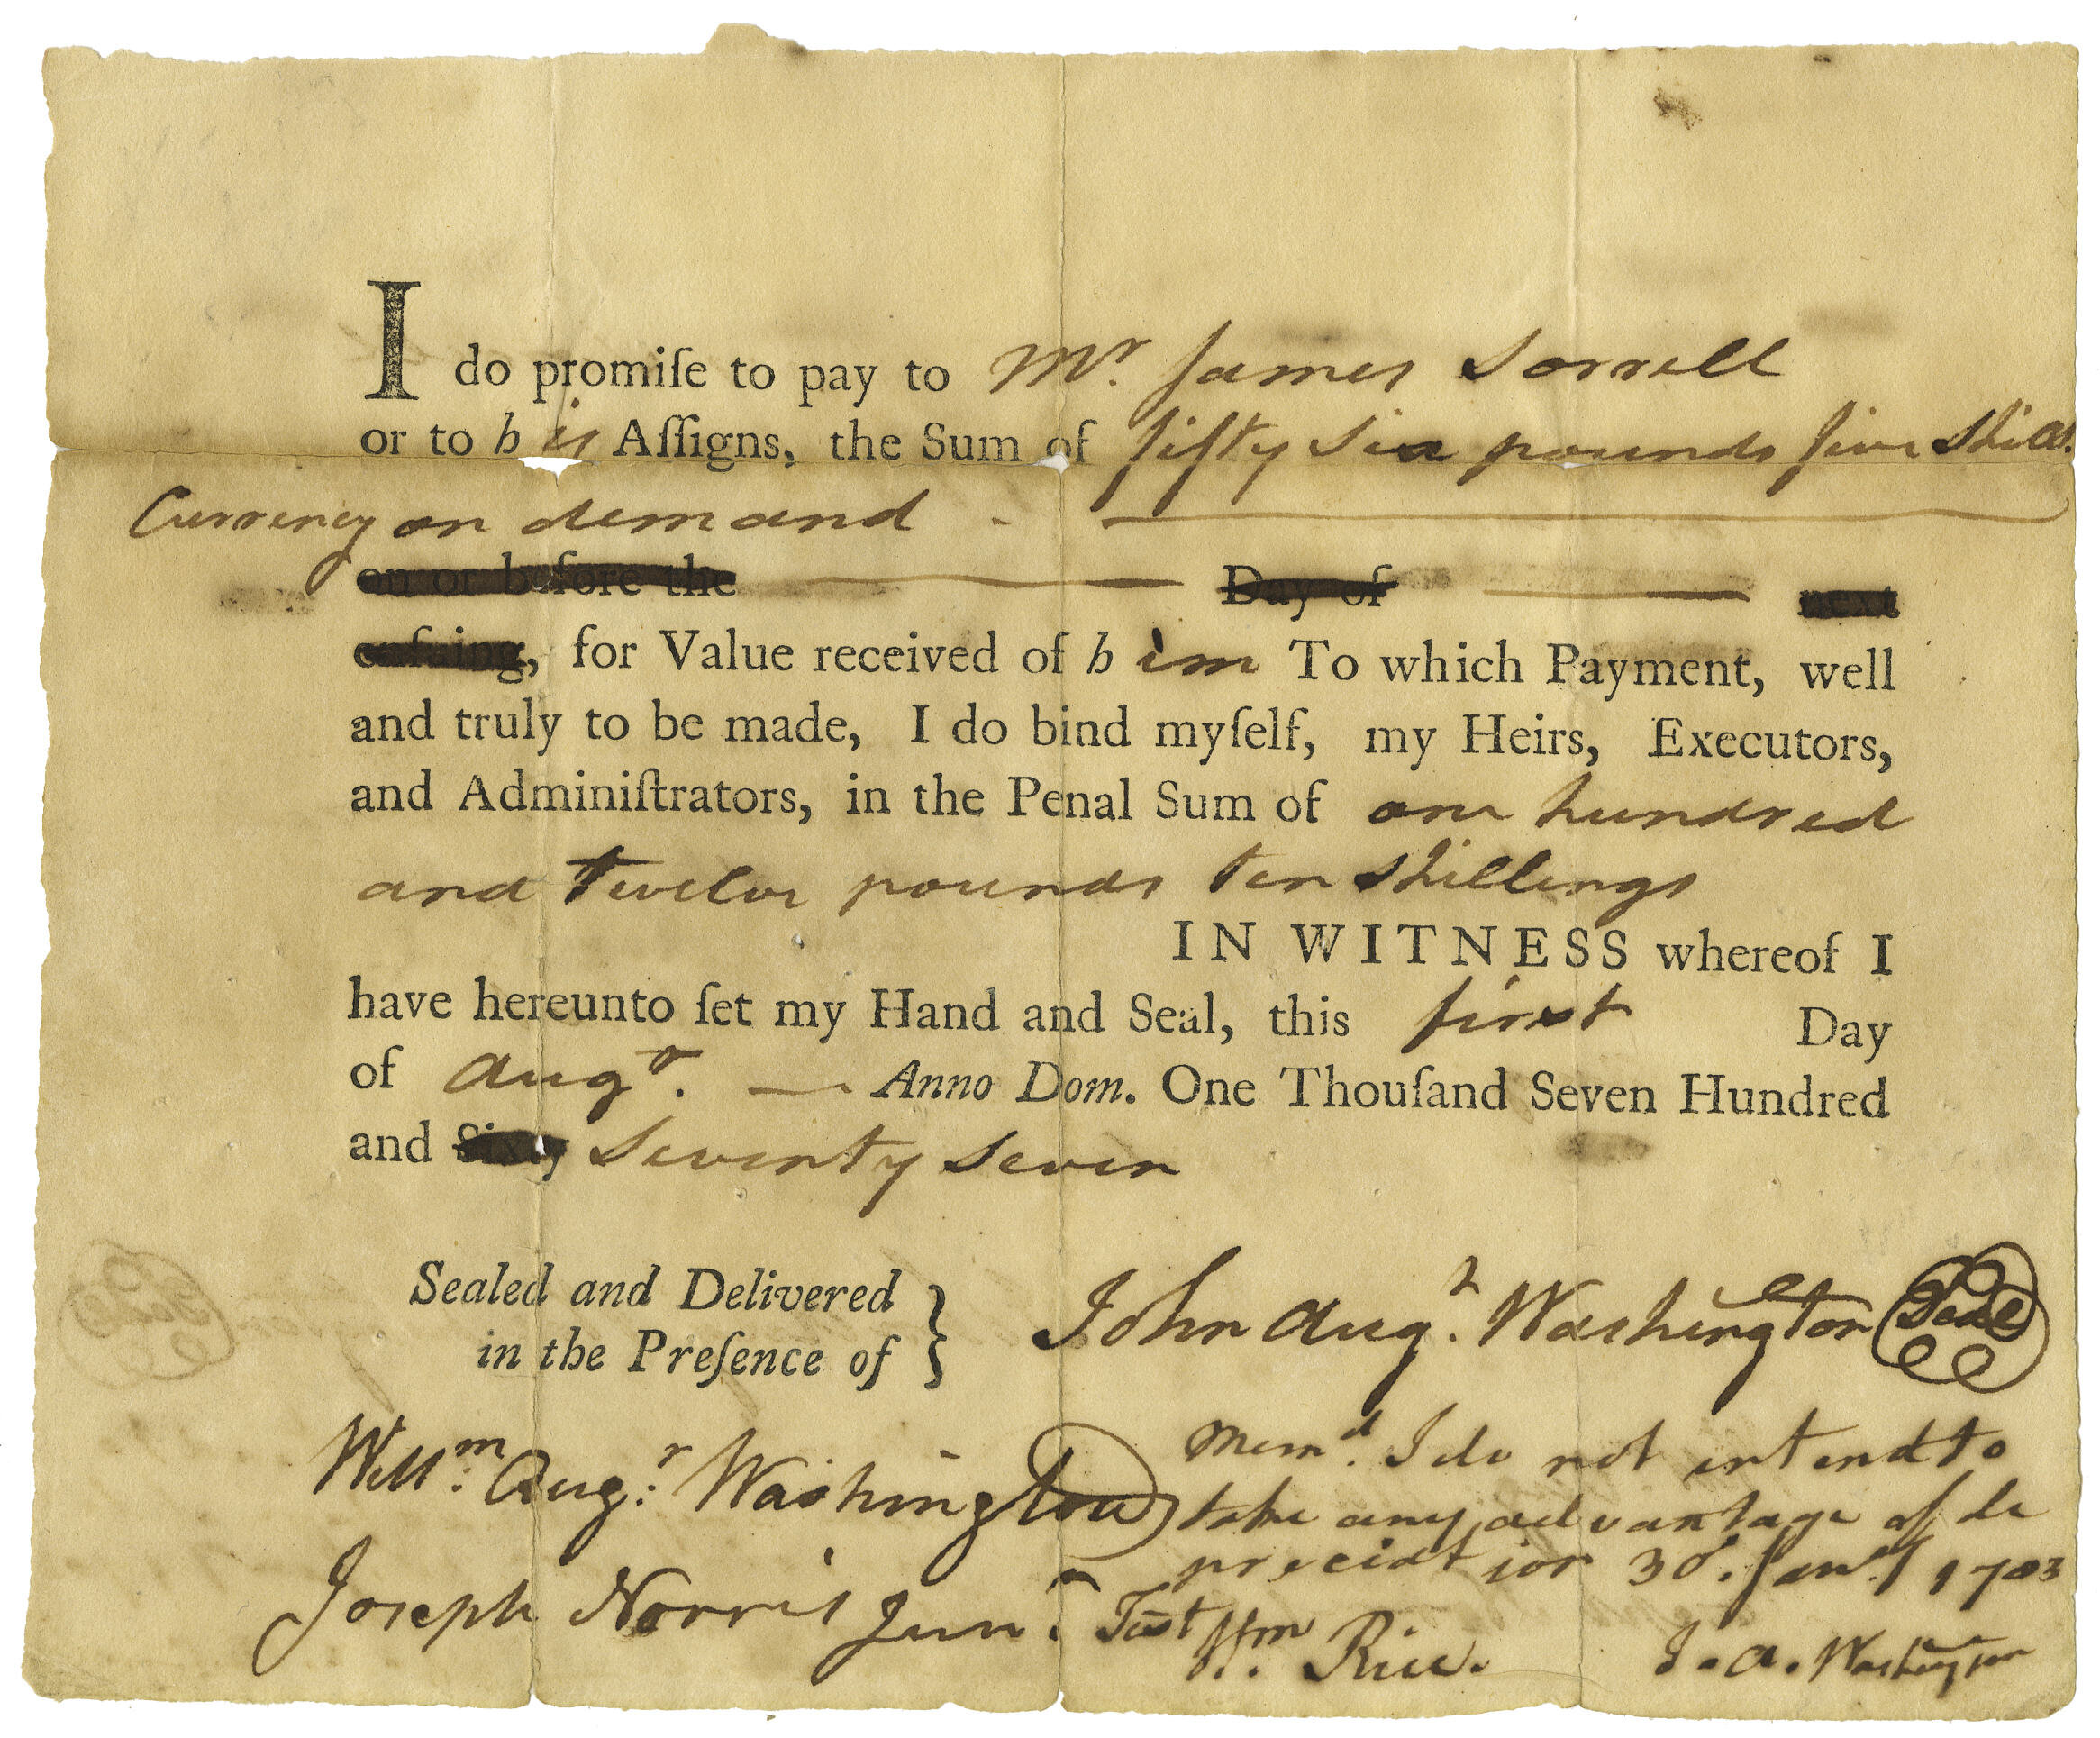 I do promiſe to pay to Mr. James Sorrell
or to his Aſſigns, the Sum of fifty six pounds five Shills.
Currency on demand -
on or before the Day of next
enſuing, for Value received of him To which Payment, well
and truly to be made, I do bind myſelf, my Heirs, Executors,
and Adminiſtrators, in the Penal Sum of one hundred
and Twelve pounds ten Shillings
IN WITNESS whereof I
have hereunto ſet my Hand and Seal, this first Day
of Augt. — Anno Dom. One Thouſand Seven Hundred
and Sixty Seventy Seven
Sealed and Delivered
in the Preſence of }
John Augt. Washington Seal
Willm: Augt: Washington
Joseph Norris Junr.
Memd. I do not intend to
take any advantage of de
preciation 30. Jany 1783
Test Wm. Rice.
J. A. Washington